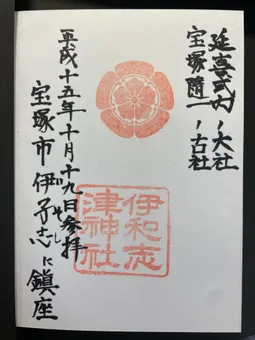 延喜式内ノ大社
宝塚随一ノ古社
伊和志
津神社
平成十五年十月十九日参拝
宝塚市伊孑志に鎮座
いそし